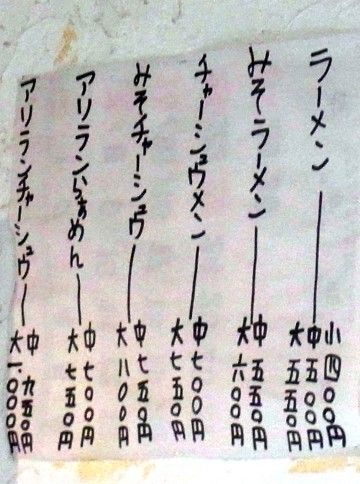 ラーメン 小四〇〇円
中五〇〇円
大五五〇円
みそラーメン 中五五〇円
大六〇〇円
チャーシュウメン 中七〇〇円
大七五〇円
みそチャーシュウ 中七五〇円
大八〇〇円
アリランらぁめん 中七〇〇円
大七五〇円
アリランチャーシュウ 中九五〇円
大一、〇〇〇円